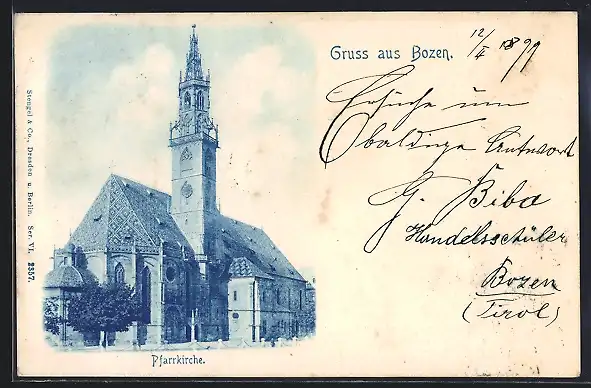 Gruss aus Bozen.
12/I 1899
Ersuche um
baldige Antwort
G. Biba
Handelsschüler
Bozen
(Tirol)
Pfarrkirche.
Stengel & Co., Dresden u. Berlin. Ser. VI. 2357.